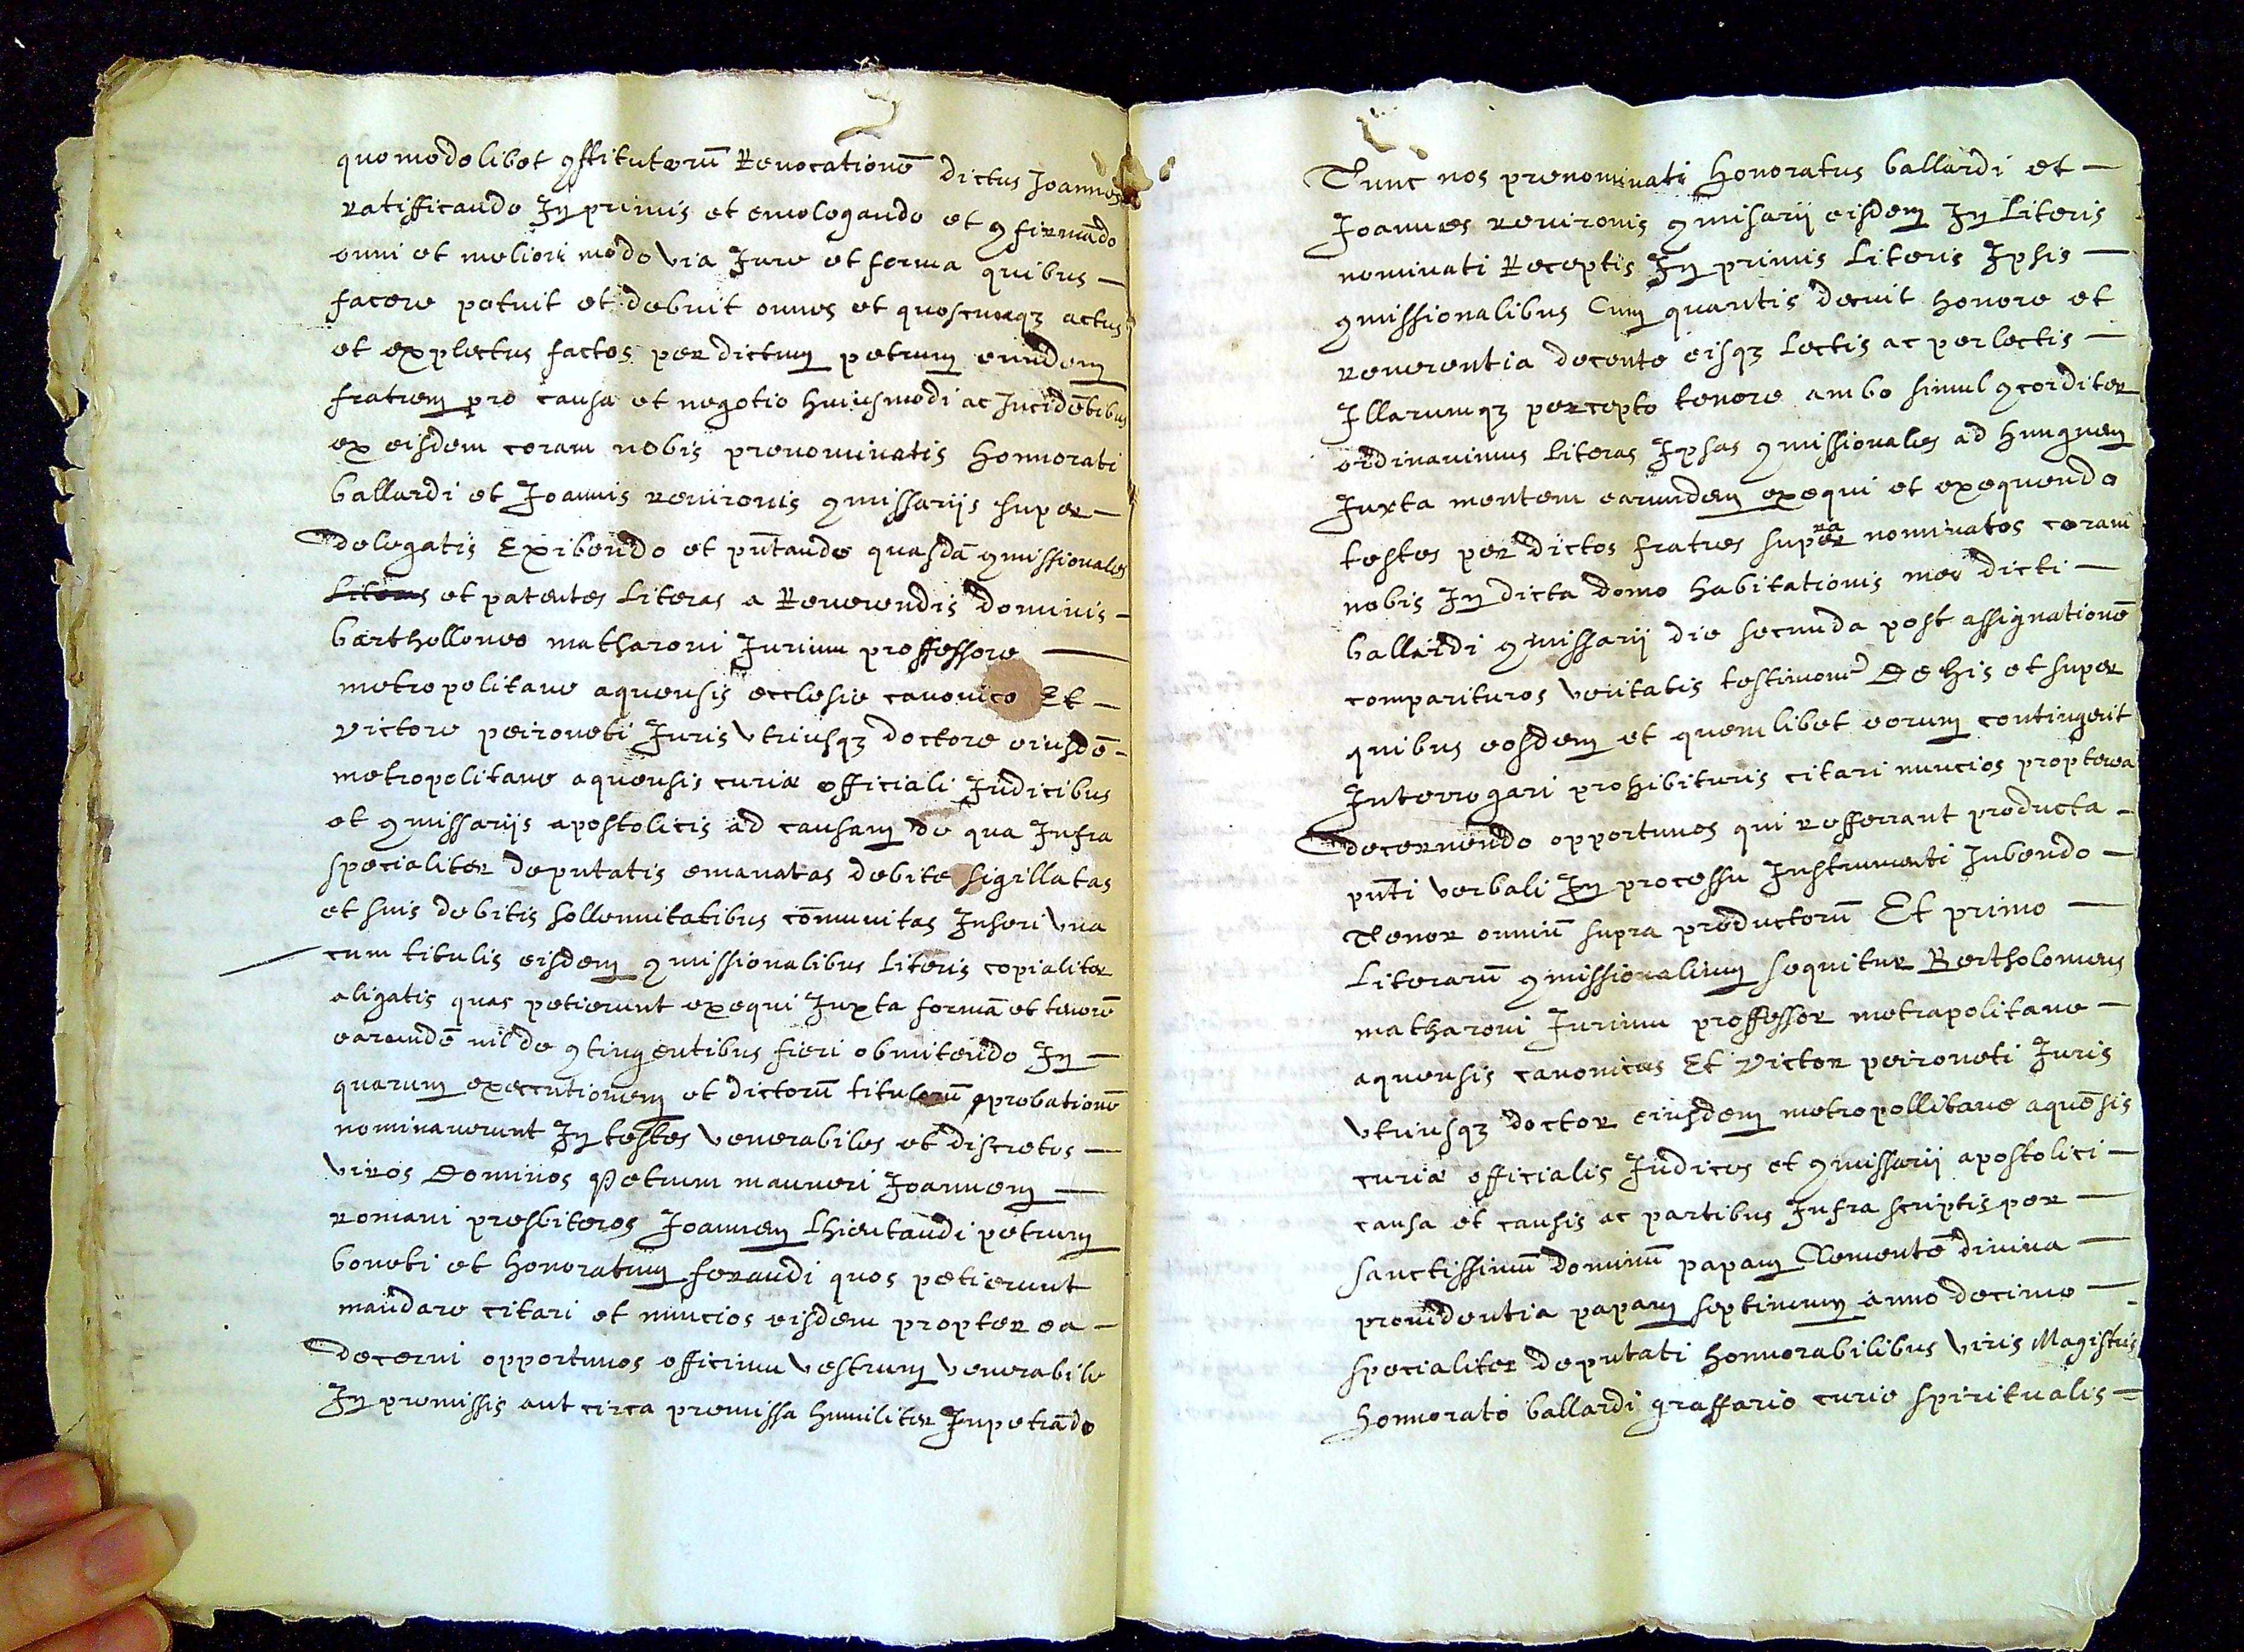 quomodolibet ꝯstitutorū Reuocationē dictus Joannes
ratifficando In primis et emologando et ꝯfirmādo
omni et meliori modo via Jure et forma quibus —
facere potuit et debuit omnes et quoscumqꝫ actus
et explectus factos per dictum petrum eundem
fratrem pro causa et negotio huiusmodi ac Incidētibus
ex eisdem coram nobis prenominatis honnorati
ballardi et Joannis reuironis ꝯmissariis super —
delegatis Exibendo et pn̄tando quasdā ꝯmissionales
Literas et patentes Literas a Reuerendis dominis —
barthellomeo matharoni Jurium proffessore —
metropolitane aquensis ecclesie canonico Et —
victore peironeti Juris vtriusqꝫ doctore eiusdē —
metropolitane aquensis curie officiali Judicibus
et ꝯmissariis apostolicis ad causam de qua Infra
specialiter deputatis emanatas debite sigillatas
et suis debitis sollemnitatibus cōmunitas Inseri vna
cum titulis eisdem ꝯmissionalibus Literis copialiter
aligatis quas petierunt exequi Juxta formā et tenorē
earumdē nil de ꝯtingentibus fieri obmitendo In —
quarum executionem et dictorū titulorū ꝓbationē
nominauerunt In testes venerabiles et discretos —
viros Dominos Petrum maureri Joannem —
romani presbiteros Joannem Lhieutaudi petrum
boneti et honoratum feraudi quos petierunt
mandare citari et nuncios eisdem propter ea —
decerni opportunos officium vestrum venerabile
In premissis aut circa premissa humiliter Inpetrādo
Tunc nos prenominati honoratus ballardi et —
Joannes reuironis ꝯmisarii eisdem In Literis
nominati Receptis In primis Literis Ipsis —
ꝯmissionalibus Cum quantis decuit honore et
reuerentia decente eisqꝫ Lectis ac perlectis —
Illarumqꝫ percepto tenore ambo simul ꝯcorditer
ordinauimus Literas Ipsas ꝯmissionales ad hunguem
Juxta mentem earumdem exequi et exequendo
testes per dictos fratres supra nominatos coram
nobis In dicta domo habitationis mei dicti —
ballardi ꝯmissarii die secunda post assignationē
comparituros veritatis testimoniū De his et super
quibus eosdem et quemlibet eorum contingerit
Interrogari prohibituris citari nuncios propterea
decernendo opportunos qui refferrant producta —
pn̄ti verbali In processu Instrumenti Jubendo —
Tenor omniū supra productorū Et primo —
Literarū ꝯmissionalium sequitur Bertholomeus
matharoni Jurium proffessor metrapolitane —
aquensis canonicus Et victor peironeti Juris
vtriusqꝫ doctor eiusdem metropollitane aquēsis
curie officialis Judices et ꝯmissarii apostolici —
causa et causis ac partibus Infra scriptis per —
sanctissimū dominū papam Clementē diuina —
prouidentia papam septimum anno decimo —
specialiter deputati honnorabilibus viris Magistris
honnorato ballardi graffario curie spiritualis —